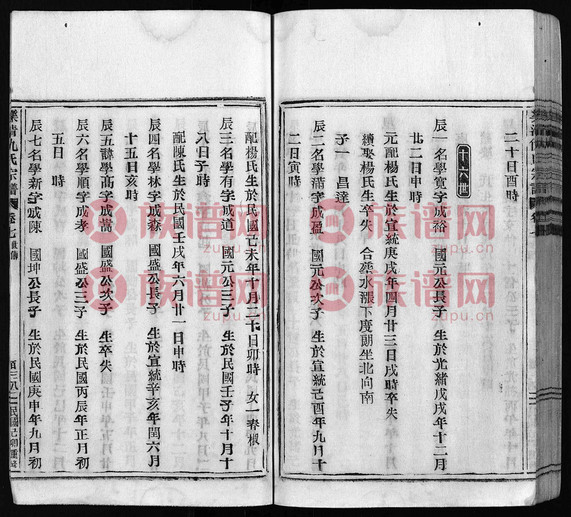 二十日酉時
十六世
辰一名學寬字成裕 國元公長子 生於光緒戊戌年十二月
廿二日申時
元配楊氏生於宣統庚戌年四月廿三日戌時卒失
續娶楊氏生卒失 合葬水漲下度朝坐北向南
子一 昌達
辰二名學蒲字成盈 國元公次子 生於宣統己酉年九月十
二日寅時
配楊氏生於民國己未年十月二十日卯時 女一春根
辰三名學有字成道 國元公三子 生於民國壬子年十月十
八日子時
配陳氏生於民國壬戌年六月廿一日申時
辰四名學林字成森 國盛公長子 生於宣統辛亥年閏六月
十五日亥時
辰五諱學高字成嵩 國盛公次子 生卒失
辰六名學順字成孝 國盛公三子 生於民國丙辰年正月初
五日 時
辰七名學新字成陳 國坤公長子 生於民國庚申年九月初
樂清仇氏宗譜 卷七
民國己卯重修
族谱网
zupu.cn
族谱网
zupu.cn
族谱网
zupu.cn
族谱网
zupu.cn